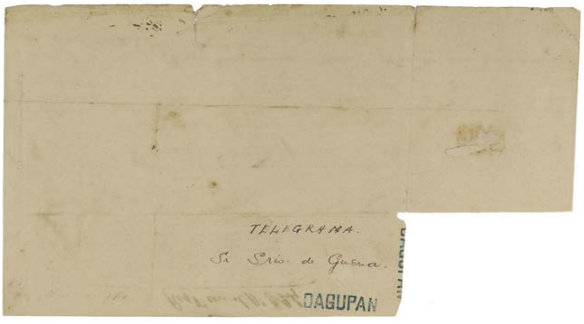 TELEGRAMA.
Sr Srio. de Guerra.
DAGUPAN
DAGUPAN